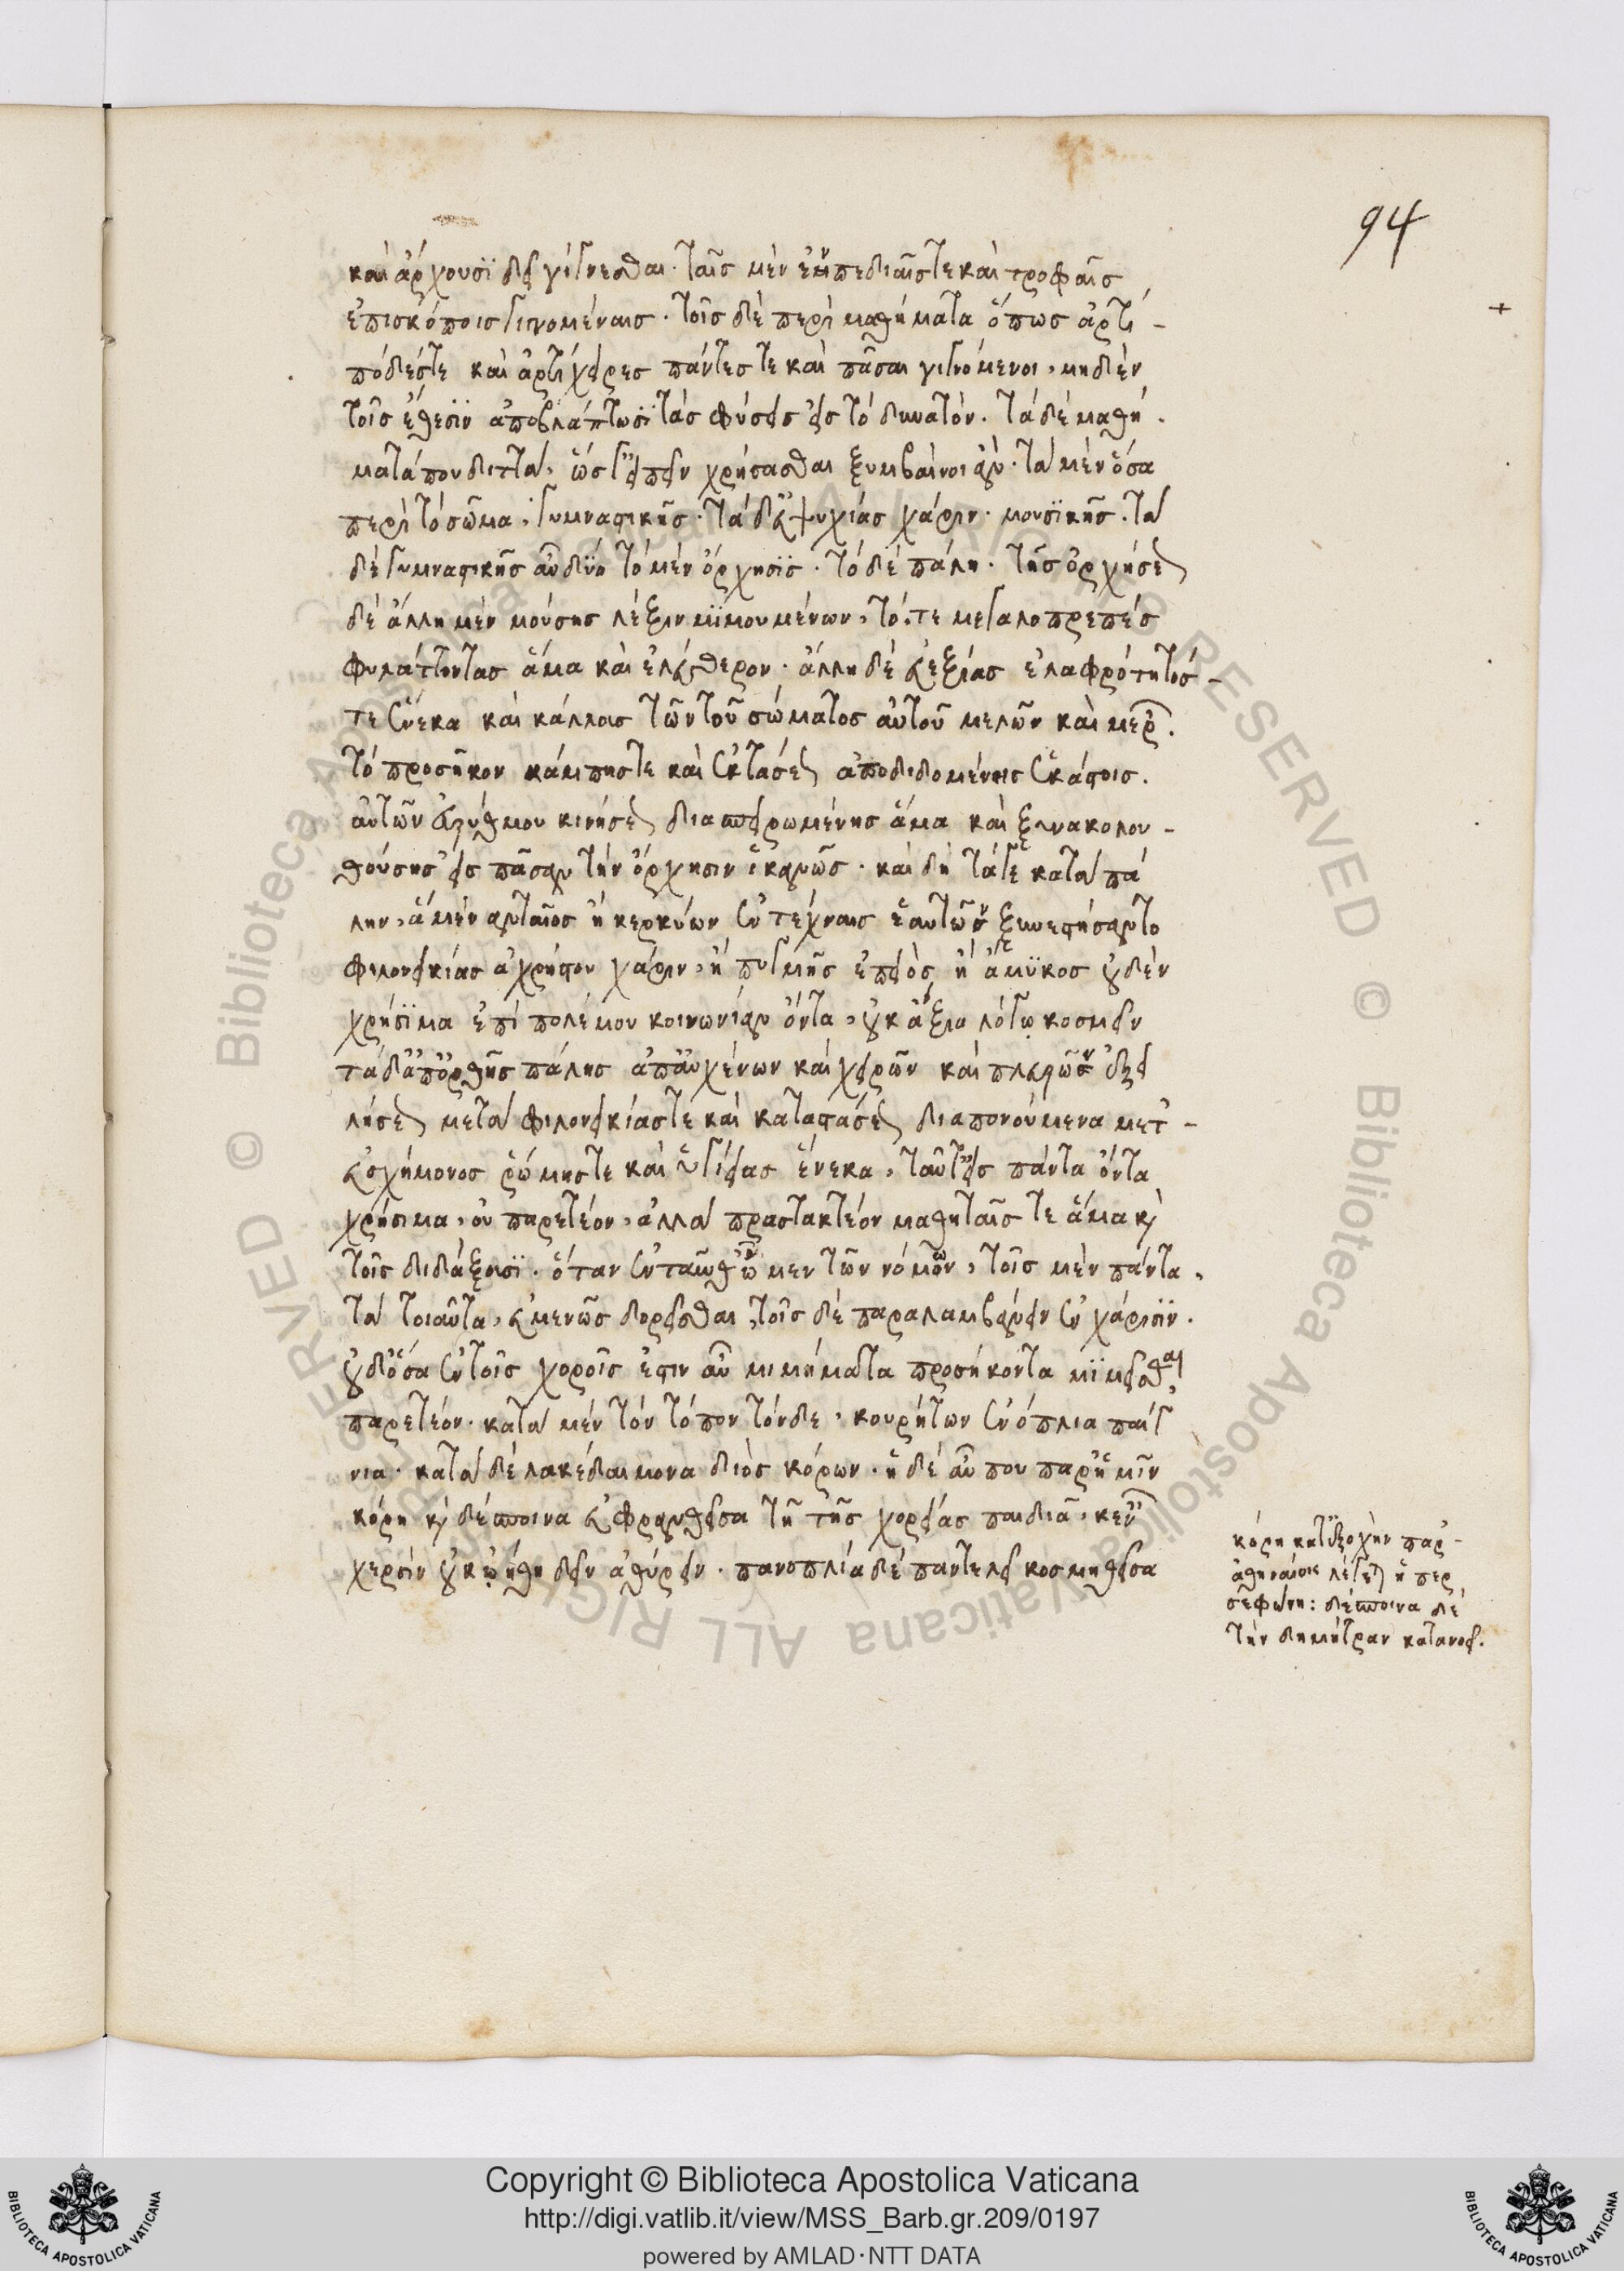 94
καὶ ἄρχουσι δεῖ γίγνεσθαι. ταῖς μὲν ἐν παιδιαῖς τε καὶ τροφαῖς
ἐπισκόποις γινομέναις. τοῖς δὲ περὶ μαθήματα ὅπως ἀρτί-
ποδές τε καὶ ἀρτίχειρες πάντές τε καὶ πᾶσαι γιγνόμενοι, μηδὲν
τοῖς ἔθεσιν ἀποβλάπτωσι τὰς φύσεις εἰς τὸ δυνατόν. τὰ δὲ μαθή-
ματά που διττὰ, ὥς γ' εἰπεῖν χρήσασθαι ξυμβαίνοι ἄν. τὰ μὲν ὅσα
περὶ τὸ σῶμα, γυμναστικῆς. τὰ δ' εὐψυχίας χάριν. μουσικῆς. τὰ
δὲ γυμναστικῆς αὖ δύο τὸ μὲν ὄρχησις. τὸ δὲ πάλη. τῆς ὀρχήσεως
δὲ ἄλλη μὲν μούσης λέξιν μιμουμένων, τό τε μεγαλοπρεπὲς
φυλάττοντας ἅμα καὶ ἐλεύθερον. ἄλλη δὲ εὐεξίας ἐλαφρότητός-
τε ἕνεκα καὶ κάλλους τῶν τοῦ σώματος αὐτοῦ μελῶν καὶ μερῶν.
τὸ προσῆκον κάμπης τε καὶ ἐκτάσεως ἀποδιδομένης ἑκάστοις.
αὐτῶν εὐρύθμου κινήσεως διασπειρωμένης ἅμα καὶ ξυνακολου-
θούσης εἰς πᾶσαν τὴν ὄρχησιν ἱκανῶς. καὶ δὴ τά γε κατὰ πά
λην, ἃ μὲν ἀνταῖος ἢ κερκύων ἐν τέχναις ἑαυτῶν ξυνεστήσαντο
φιλονεικίας ἀχρήστου χάριν, ἢ πυγμῆς ἐπειὸς ἢ ἄμυκος οὐδὲν
χρήσιμα ἐπὶ πολέμου κοινωνίαν ὄντα, οὐκ ἄξια λόγῳ κοσμεῖν
τὰ δ' ἀπ' ὀρθῆς πάλης ἀπ' αὐχένων καὶ χειρῶν καὶ πλευρῶν ἐξει
λήσεως μετὰ φιλονεικίας τε καὶ καταστάσεως διαπονούμενα μετ-
εὐσχήμονος ῥώμης τε καὶ ὑγιείας ἕνεκα, ταῦτ' εἰς πάντα ὄντα
χρήσιμα, οὐ παρετέον, ἀλλὰ προστακτέον μαθηταῖς τε ἅμα καὶ
τοῖς διδάξουσι. ὅταν ἐνταῦθ' ὦμεν τῶν νόμων, τοῖς μὲν πάντα,
τὰ τοιαῦτα, εὐμενῶς δορεῖσθαι, τοῖς δὲ παραλαμβάνειν ἐν χάρισιν.
οὐδ' ὅσα ἐν τοῖς χοροῖς ἐστιν αὖ μιμήματα προσήκοντα μιμεῖσθαι,
παρετέον. κατὰ μὲν τὸν τόπον τόνδε, κουρήτων ἐνόπλια παίγ
νια. κατὰ δὲ λακέδαιμονα διὸς κόρων. ἡ δὲ αὖ που παρ' ἡμῖν
κόρη καὶ δέσποινα εὐφρανθεῖσα τῇ τῆς χορείας παιδιᾷ, κεν
χερσὶν οὐκ ᾠήθη δεῖν ἀθύρειν. πανοπλίᾳ δὲ παντελεῖ κοσμηθεῖσα
κόρη κατ' ἐξοχὴν παρ-
ἀθηναίοις λέγεται ἡ περ
σεφόνη: δέσποινα δὲ
τὴν δημήτραν κατανοεῖ.
Copyright © Biblioteca Apostolica Vaticana
http://digi.vatlib.it/view/MSS_Barb.gr.209/0197
powered by AMLAD·NTT DATA